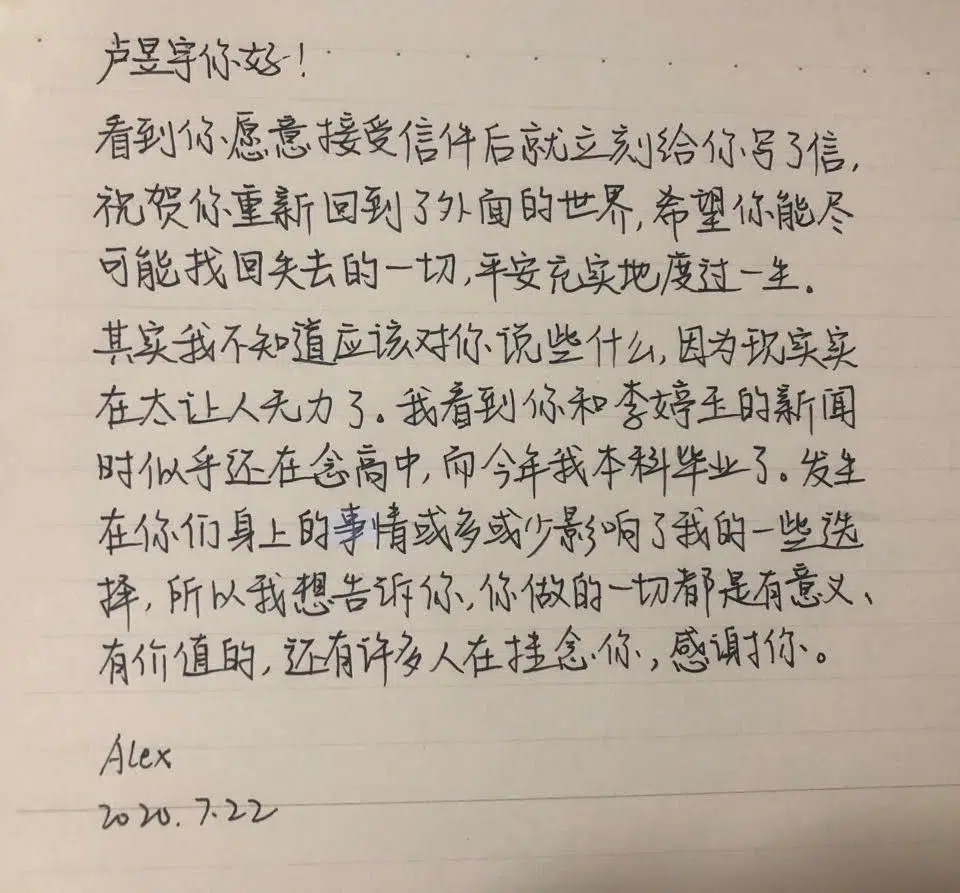 卢昱宇你好！
看到你愿意接受信件后就立刻给你写了信，
祝贺你重新回到了外面的世界，希望你能尽
可能找回失去的一切，平安充实地度过一生．
其实我不知道应该对你说些什么，因为现实实
在太让人无力了。我看到你和李婷玉的新闻
时似乎还在念高中，而今年我本科毕业了。发生
在你们身上的事情或多或少影响了我的一些选
择，所以我想告诉你，你做的一切都是有意义、
有价值的，还有许多人在挂念你，感谢你。
Alex
2020.7.22